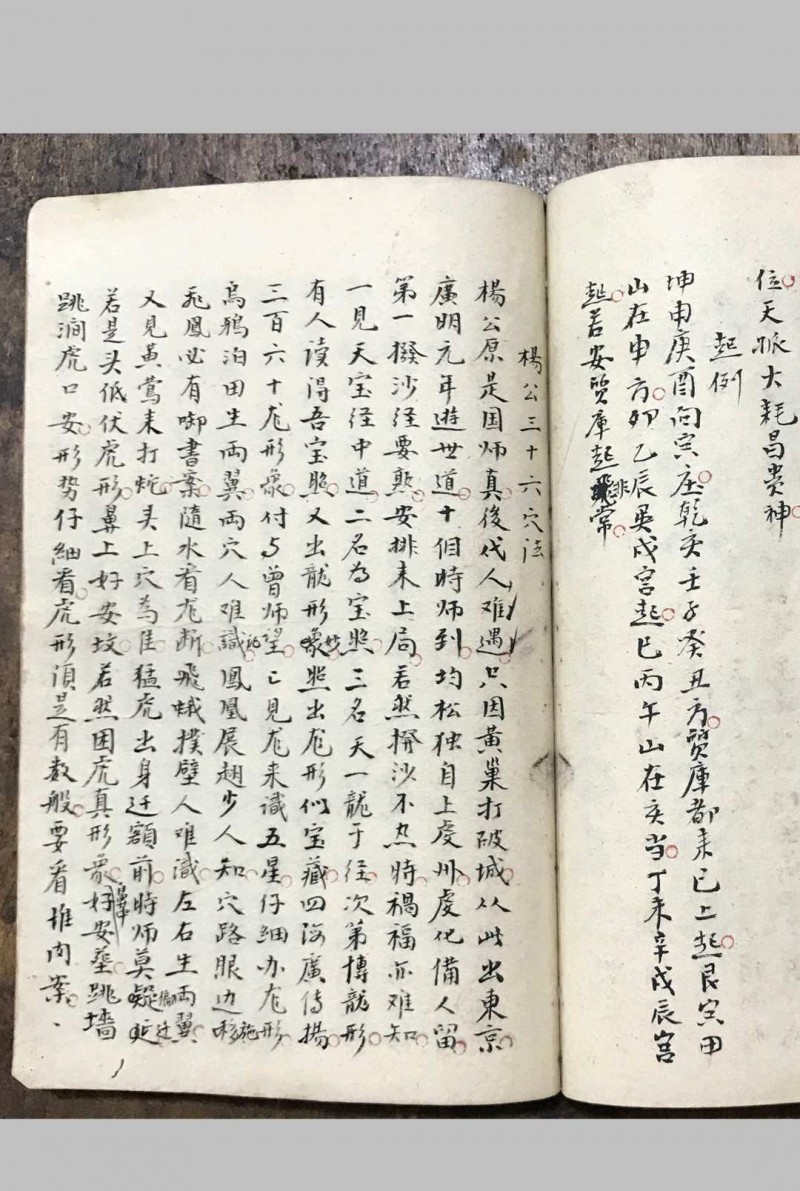 位天賑大耗昌贵神
起例
坤申庚酉向寅庄乾亥壬子癸丑方贸庫都来已上起艮寅甲
山在申方卯乙辰巽戍宫起巳丙午山在亥当丁未辛戌辰宫
起若安贸庫起非常
楊公三十六穴法
楊公原是国师真後代人难遇只因黄巢打破城从此出東京
廣明元年遊世道十個時师到均松独自上虔州虔化備人留
第一撥沙经要熟安排来上局若然撥沙不热時禍福亦难知
一見天宝径中道二名為宝照三名天一龍于径次第博龍形
有人读得吾宝照又出龍形妙照出龙形似宝藏四海廣传揚
三百六十龙形象付与曾师望已見龙来識五星仔細办龙形
烏鴉泊田生両翼両穴人难識鳳凰展翅少人知穴路眼边施
飛鳳必有啣書案隨水看龙断飛蛾撲壁人难識左右生両翼
又見黄鶯来打蛇头上穴為佳猛虎出身迁額前時师莫疑迁
若是头低伏虎形鼻上好安坟若然困虎真形象好安塟跳墙
跳澗虎口安形势仔細看虎形須是有数般要看堆肉案